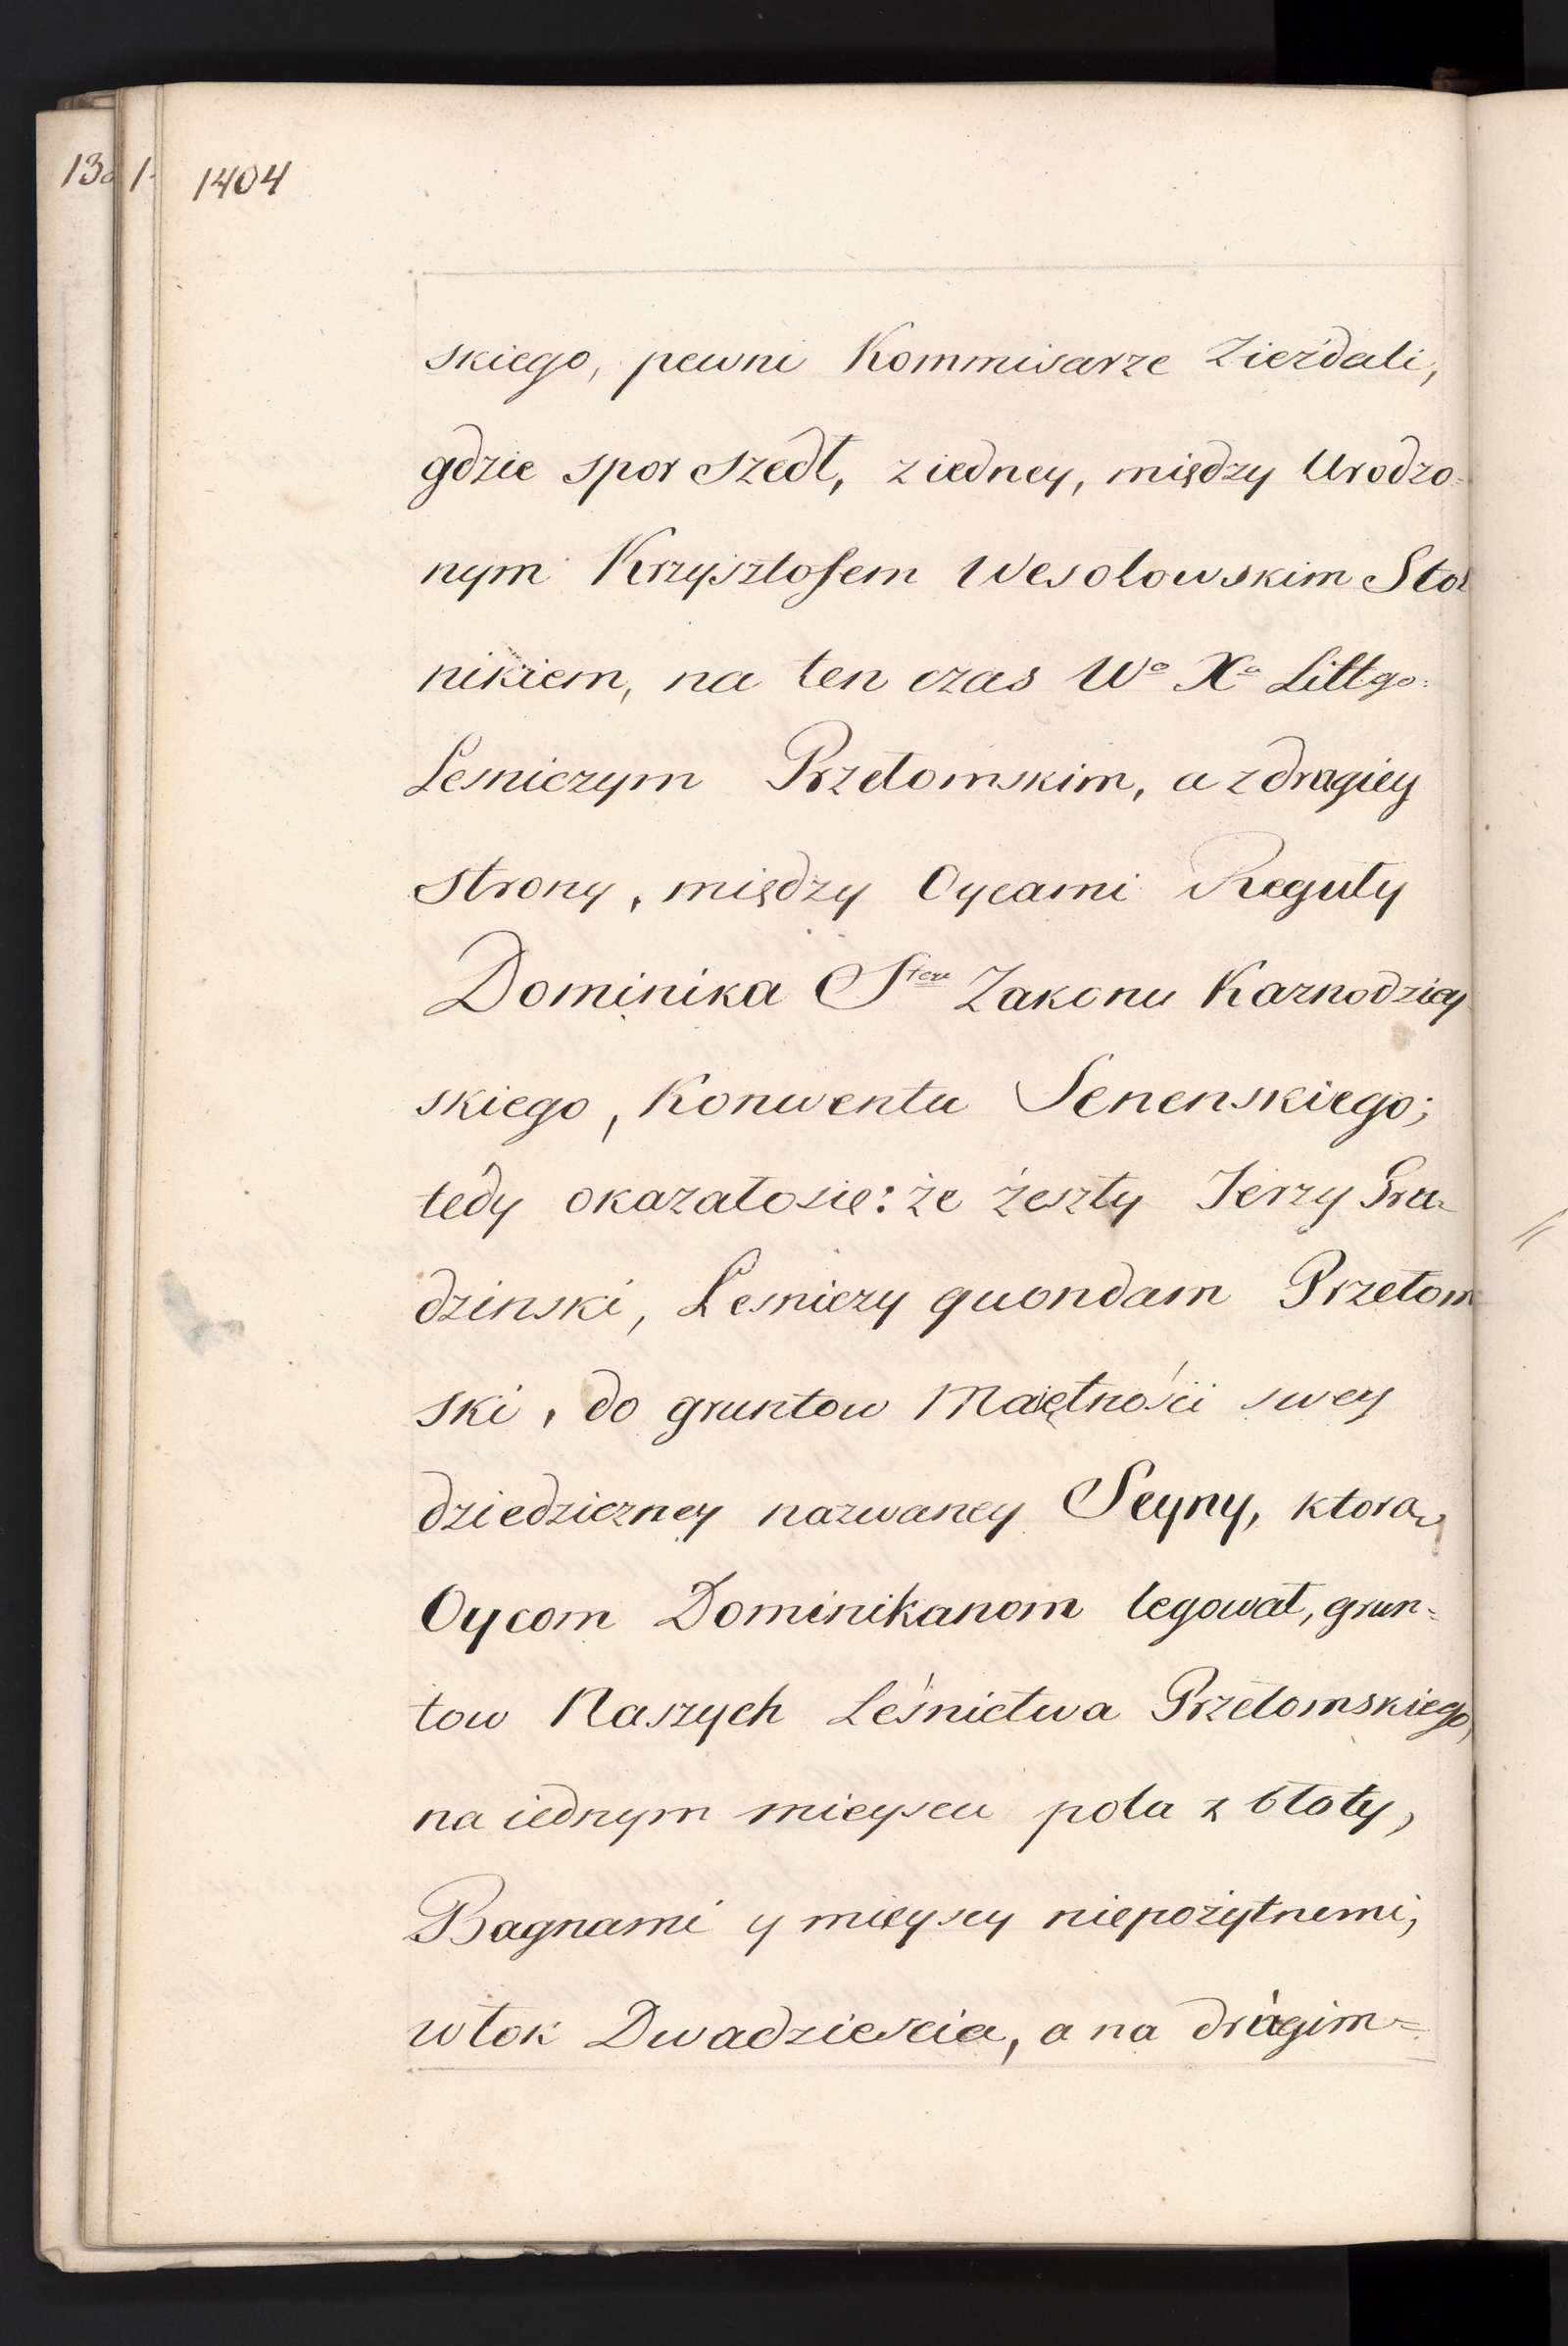 13
1
1404
skiego, pewni Kommisarze Zieżdali,
gdzie spor szedł, z iedney, między Urodzo=
nym Krzysztofem Wesołowskim Stol
nikiem, na ten czas Wº Xª Littgo.
Lesniczym Przełomskim, a z drugiey
strony, między Oycami Reguły
Dominika Zakonu Kaznodziey
skiego, Konwentu Senenskiego;
tedy okazałosię: że żeszły Jerzy Gru=
dzinski, Lesniczy quondam Przełom
ski, do gruntow Maiętnośći swey
dziedziczney nazwaney Seyny, ktorą
Oycom Dominikanom legował, grun=
tow Naszych Leśnictwa Przełomskiego,
na iednym mieyscu pola z błoty,
Bagnami y mieyscy niepożytnemi,
włok Dwadziescia, a na drugim=